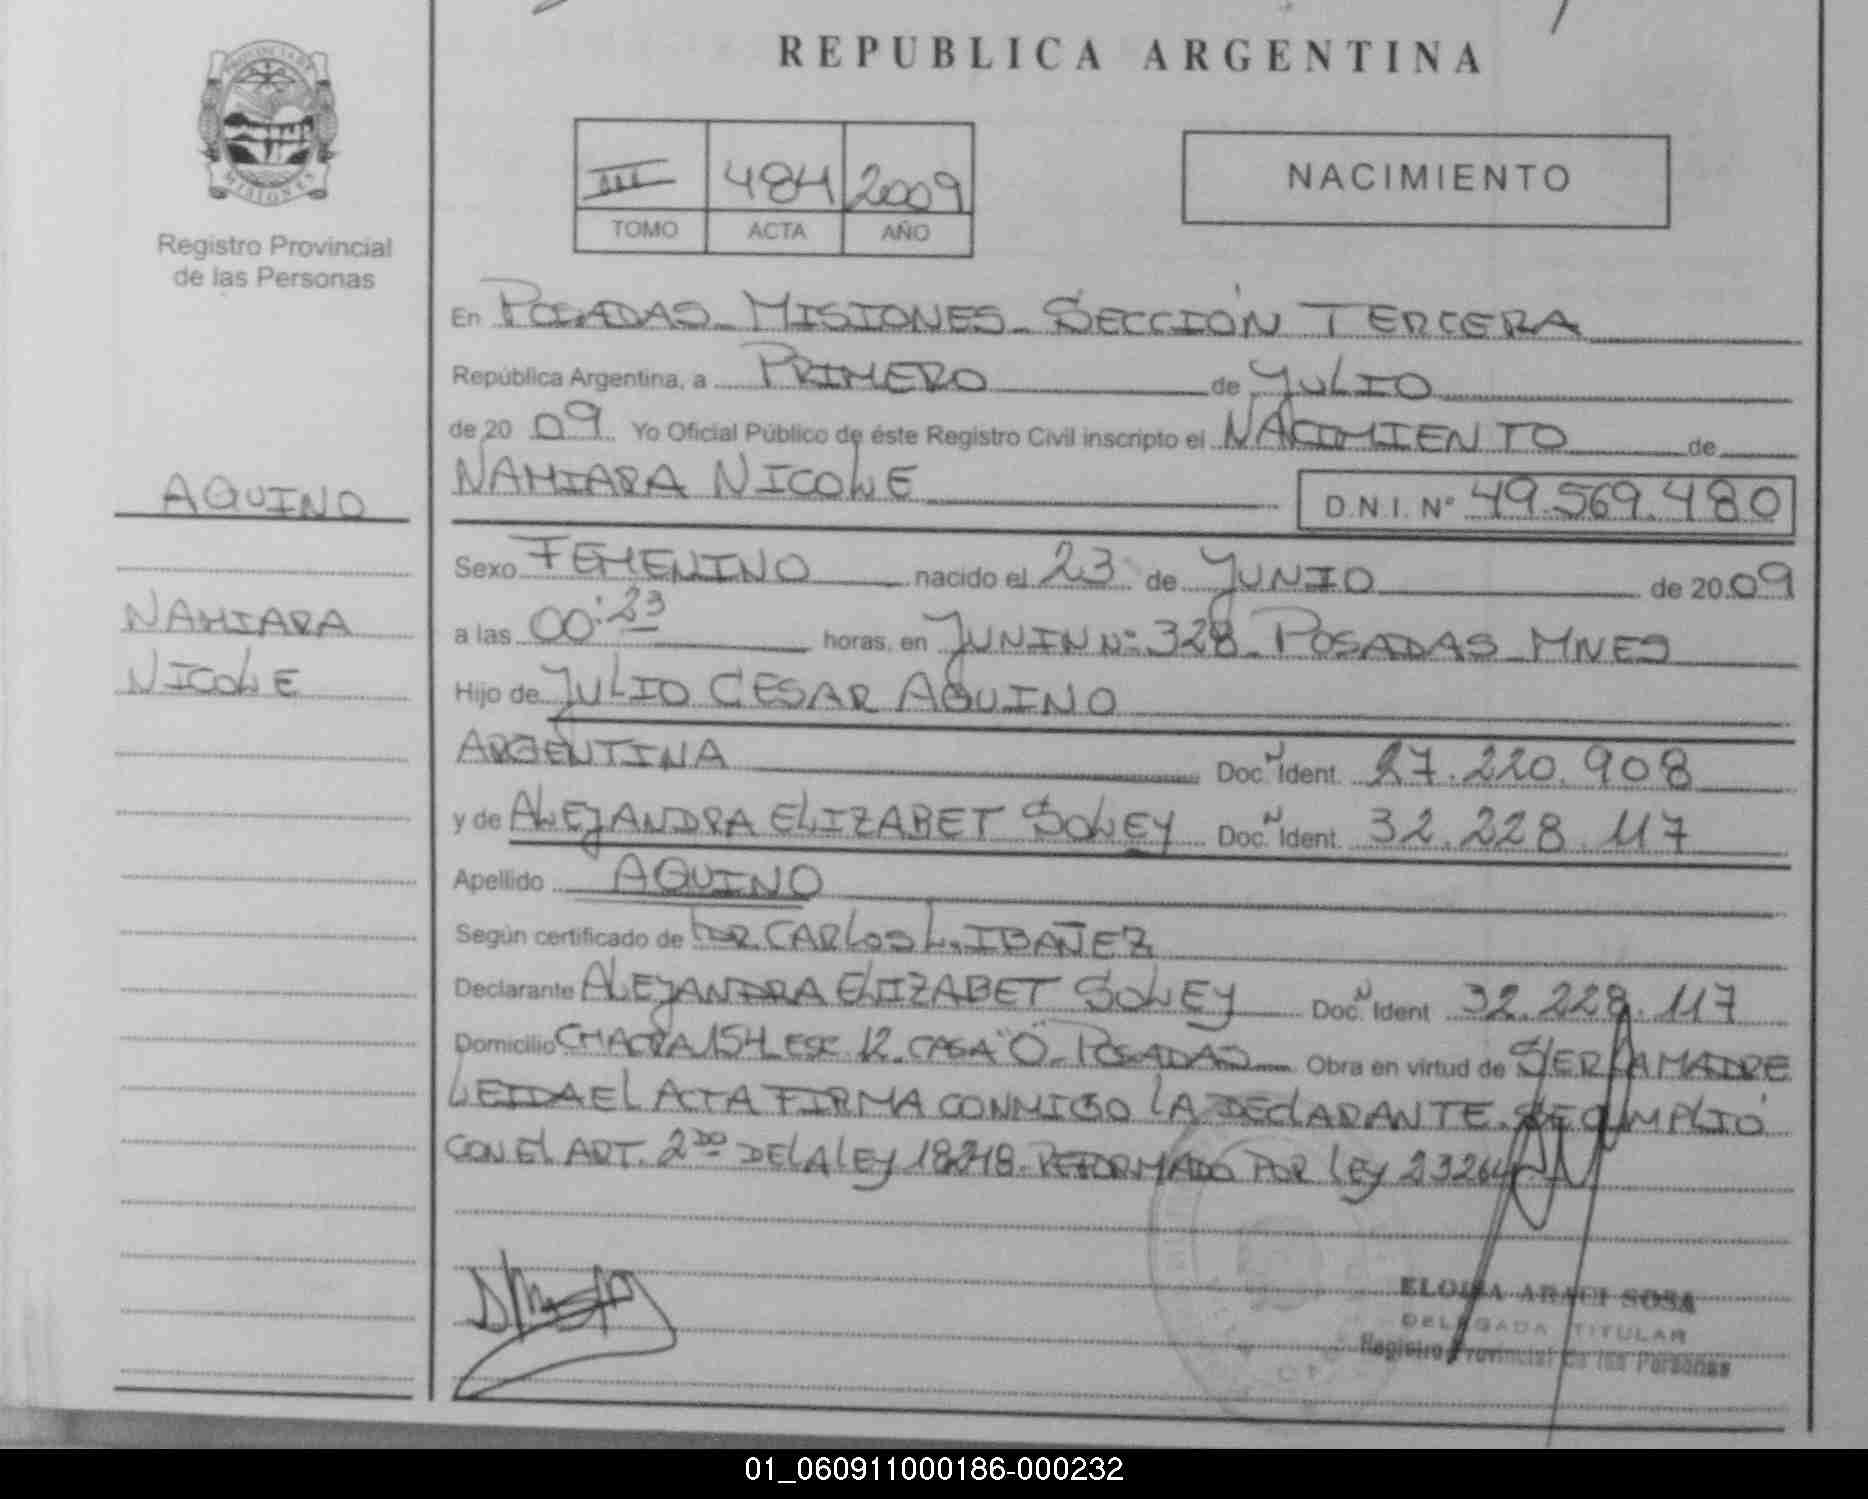 PROVINCIA DE
MISIONES
Registro Provincial
de las Personas
AQUINO
NAHIARA
NICOLE
REPUBLICA ARGENTINA
III 484 2009
TOMO ACTA AÑO
NACIMIENTO
En POSADAS - MISIONES - SECCIÓN TERCERA
República Argentina, a PRIMERO de JULIO
de 20 09 Yo Oficial Público de éste Registro Civil inscripto el NACIMIENTO de
NAHIARA NICOLE D.N.I. Nº 49.569.480
Sexo FEMENINO nacido el 23 de JUNIO de 20 09
a las 00:23 horas, en JUNIN Nº 328 - POSADAS - MNES
Hijo de JULIO CESAR AQUINO
ARGENTINA Doc. N Ident. 27.220.908
y de ALEJANDRA ELIZABET SOLEY Doc. N Ident. 32.228.117
Apellido AQUINO
Según certificado de CARLOS L. IBAÑEZ
Declarante ALEJANDRA ELIZABET SOLEY Doc. N Ident 32.228.117
Domicilio CHACRA 154 ESC 12 - CASA "O" - POSADAS Obra en virtud de SER LA MADRE
LEIDA EL ACTA FIRMA CONMIGO LA DECLARANTE. SE CUMPLIÓ
CON EL ART. 2DO DE LA LEY 18248 - REFORMADO POR LEY 23264
ELOISA ARACI SOSA
DELEGADA TITULAR
Registro Provincial de las Personas
01_060911000186-000232